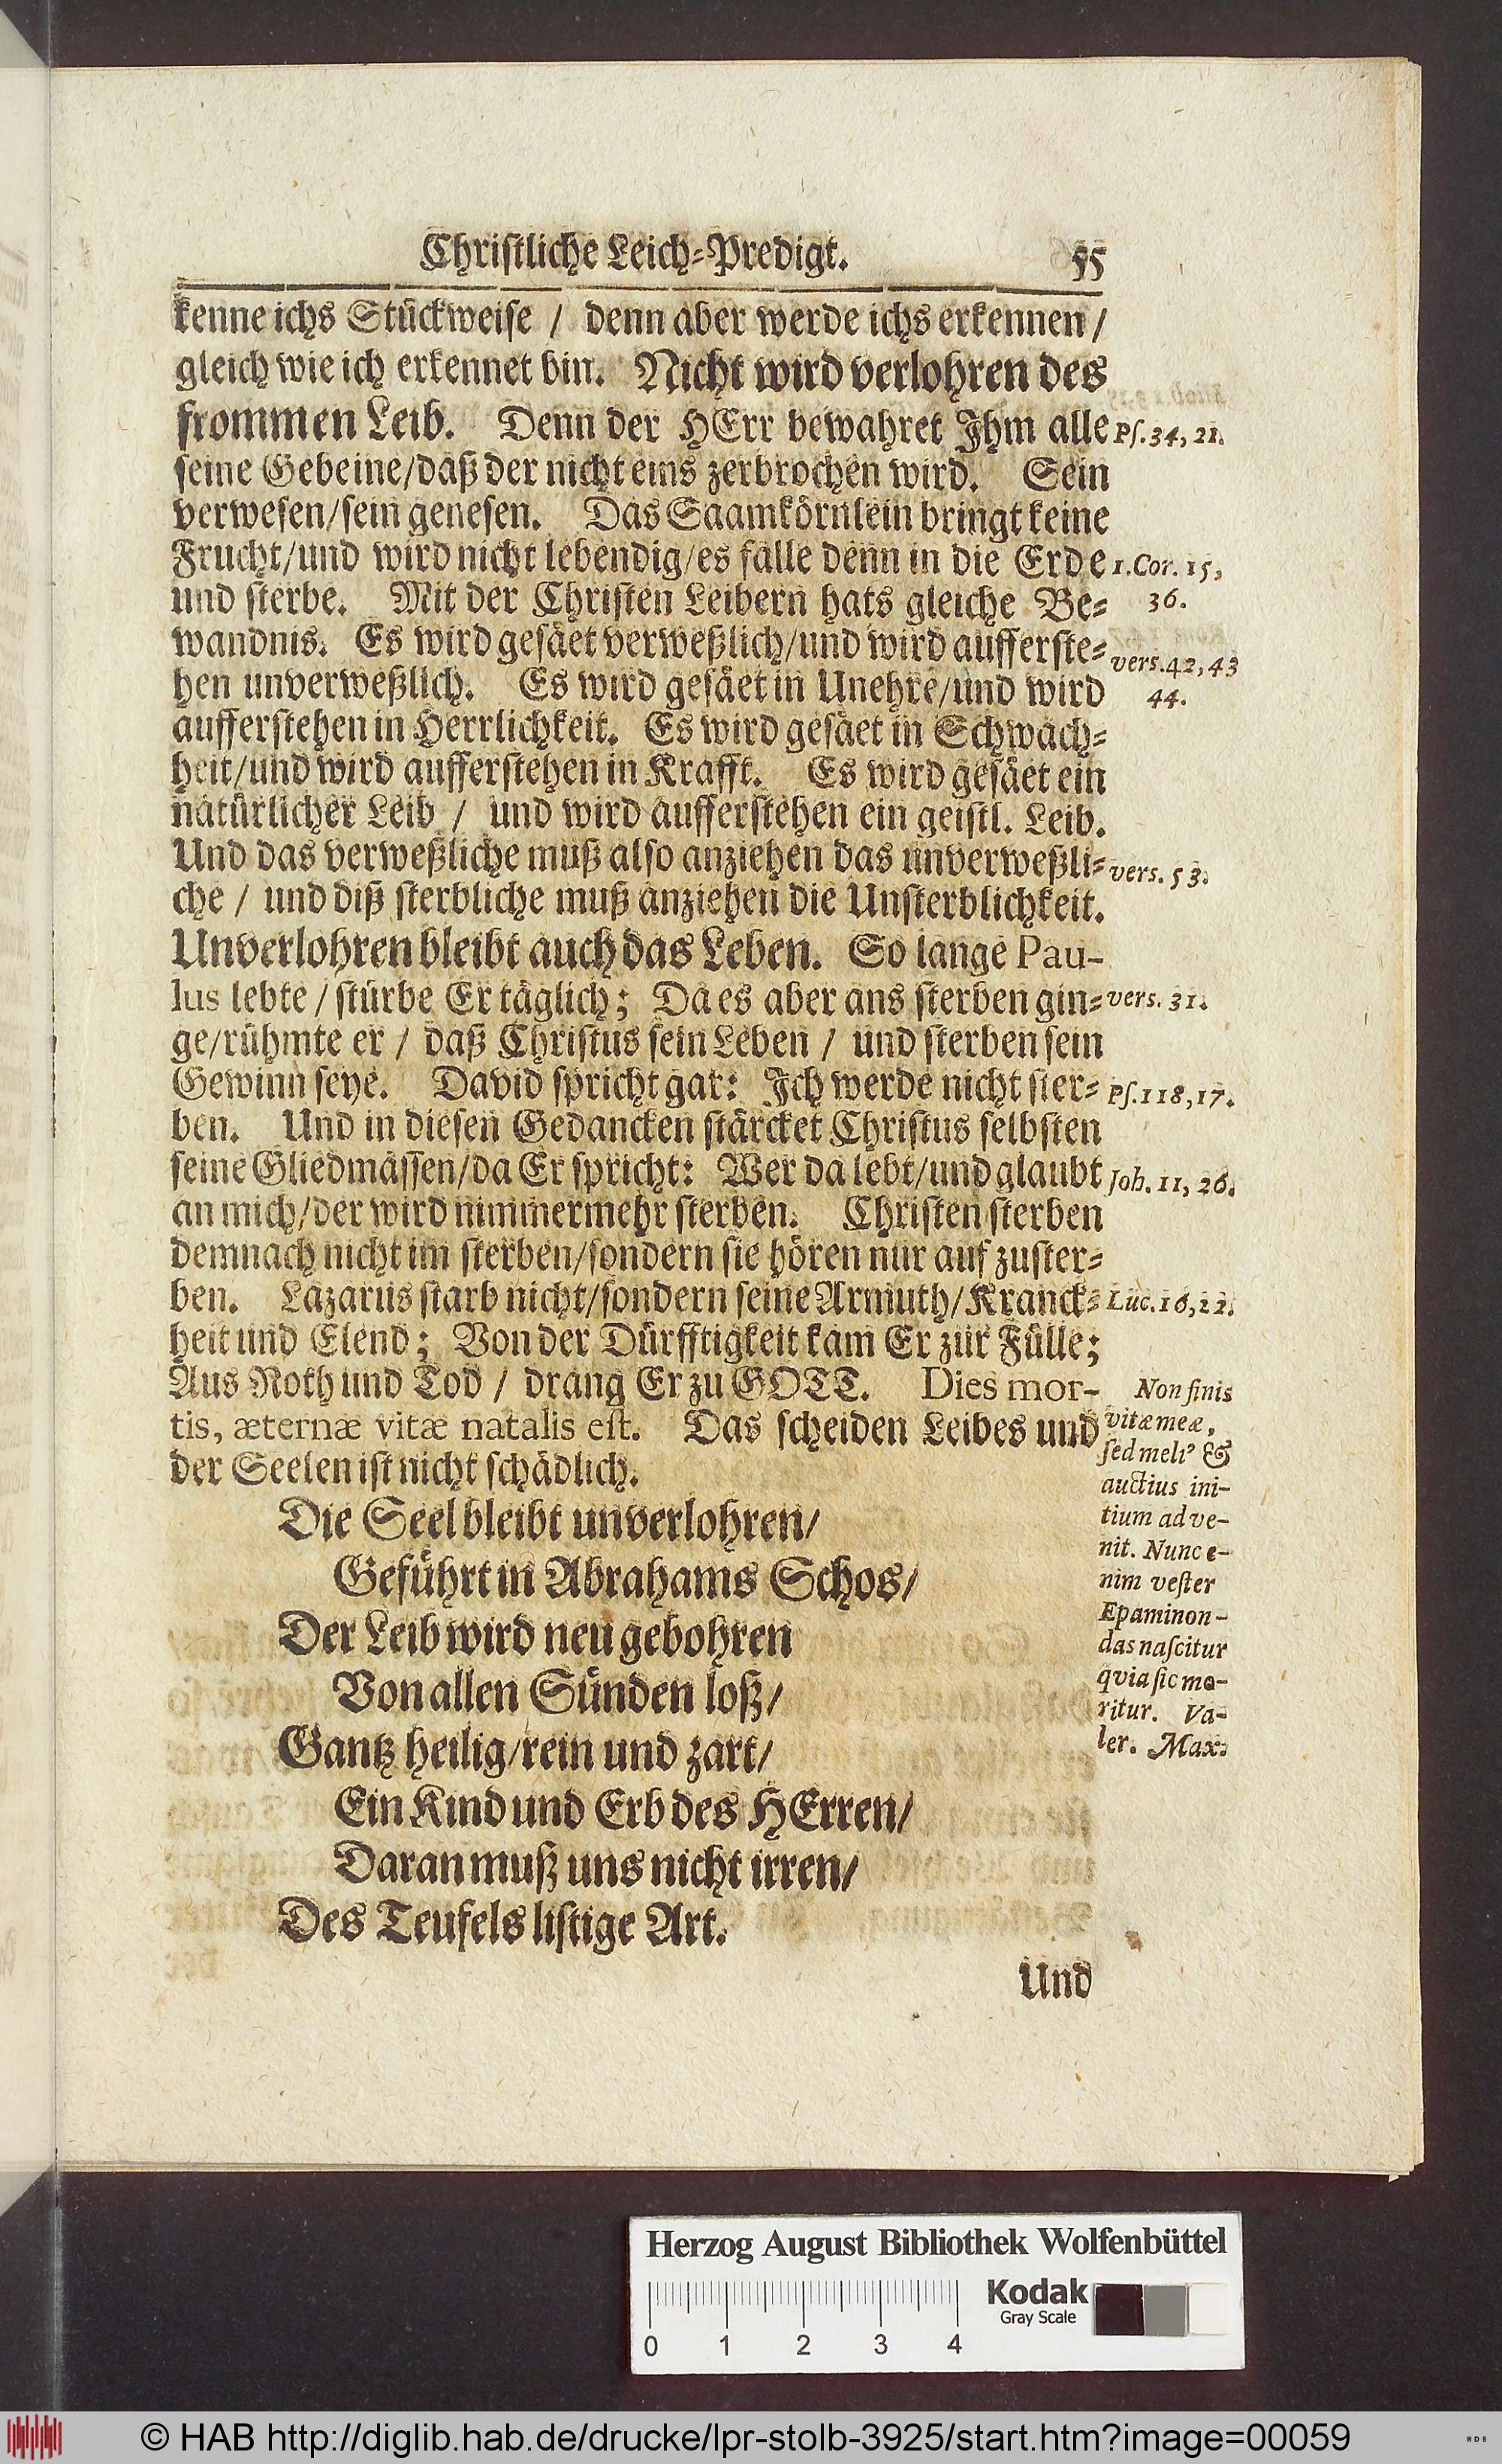 Christliche Leich-Predigt. 55
kenne ichs Stückweise / denn aber werde ichs erkennen /
gleich wie ich erkennet bin. Nicht wird verlohren des
frommen Leib. Denn der HErr bewahret Ihm alle
Ps. 34, 21.
seine Gebeine/daß der nicht eins zerbrochen wird. Sein
verwesen/sein genesen. Das Saamkörnlein bringt keine
Frucht/und wird nicht lebendig/es falle denn in die Erde
1. Cor. 15,
und sterbe. Mit der Christen Leibern hats gleiche Be-
36.
wandnis. Es wird gesäet verweßlich/und wird aufferste-
vers. 42, 43
hen unverweßlich. Es wird gesäet in Unehre/und wird
44.
aufferstehen in Herrlichkeit. Es wird gesäet in Schwach-
heit/und wird aufferstehen in Krafft. Es wird gesäet ein
natürlicher Leib / und wird aufferstehen ein geistl. Leib.
Und das verweßliche muß also anziehen das unverweßli-
vers. 53.
che / und diß sterbliche muß anziehen die Unsterblichkeit.
Unverlohren bleibt auch das Leben. So lange Pau-
lus lebte / stürbe Er täglich; Da es aber ans sterben gin-
vers. 31.
ge/rühmte er / daß Christus sein Leben / und sterben sein
Gewinn seye. David spricht gar: Ich werde nicht ster-
Ps. 118, 17.
ben. Und in diesen Gedancken stärcket Christus selbsten
seine Gliedmassen/da Er spricht: Wer da lebt/und glaubt
Joh. 11, 26.
an mich/der wird nimmermehr sterben. Christen sterben
demnach nicht im sterben/sondern sie hören nur auf zuster-
ben. Lazarus starb nicht/sondern seine Armuth/Kranck-
Luc. 16, 22.
heit und Elend; Von der Dürfftigkeit kam Er zur Fülle;
Aus Noth und Tod / drang Er zu GOTT. Dies mor-
tis, æternæ vitæ natalis est. Das scheiden Leibes und
der Seelen ist nicht schädlich.
Non finis
vitæ meæ,
sed meli' &
auctius ini-
tium adve-
nit. Nunc e-
nim vester
Epaminon-
das nascitur
qvia sic mo-
ritur. Va-
ler. Max.
Die Seel bleibt unverlohren/
Geführt in Abrahams Schos/
Der Leib wird neu gebohren
Von allen Sünden loß/
Gantz heilig/rein und zart/
Ein Kind und Erb des HErren/
Daran muß uns nicht irren/
Des Teufels listige Art.
Und
Herzog August Bibliothek Wolfenbüttel
Kodak
Gray Scale
0 1 2 3 4
© HAB http://diglib.hab.de/drucke/lpr-stolb-3925/start.htm?image=00059